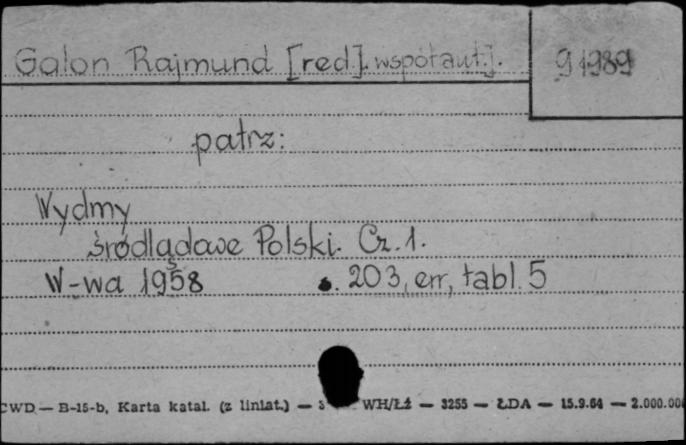 Galon Rajmund [red.]. współaut.]. 91989
patrz:
Wydmy
śródlądowe Polski. Cz. 1.
W-wa 1958 s. 203, err, tabl. 5
CWD — B-15-b, Karta katal. (z liniat.) — WH/Łż — 3255 — ŁDA — 15.9.64 — 2.000.000